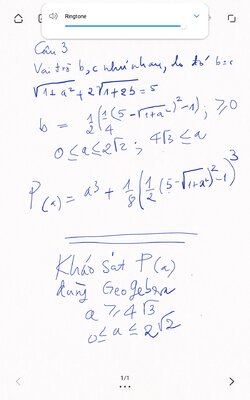 Ringtone
Câu 3
Vai trò b, c như nhau, do đó b=c
√(1+a²) + 2√(1+2b) = 5
b = 1/2 (1/4 (5-√(1+a²))² -1) ; ≥0
0 ≤ a ≤ 2√2 ; 4√3 ≤ a
P(a) = a³ + 1/8 (1/2 (5-√(1+a²))² -1)³
Khảo sát P(a)
dùng Geogebra
a ≥ 4√3
0 ≤ a ≤ 2√2
1/1